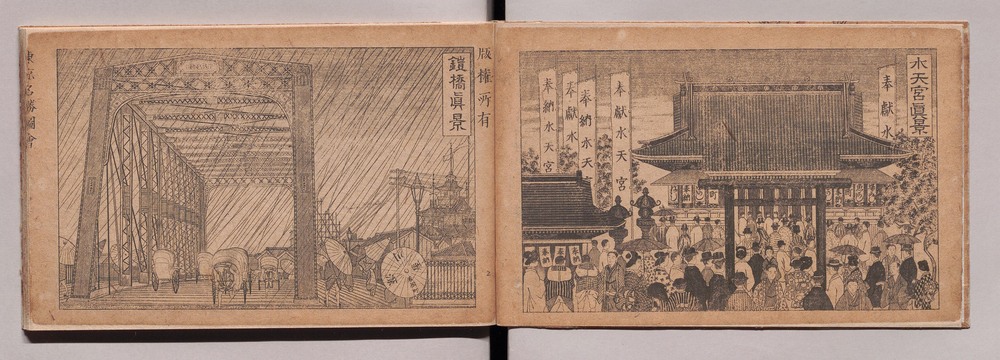 版權所有
鎧橋眞景
東京名勝圖會
水天宮眞景
奉獻水
奉獻水天宮
奉納水天宮
奉獻水天
奉納水天宮